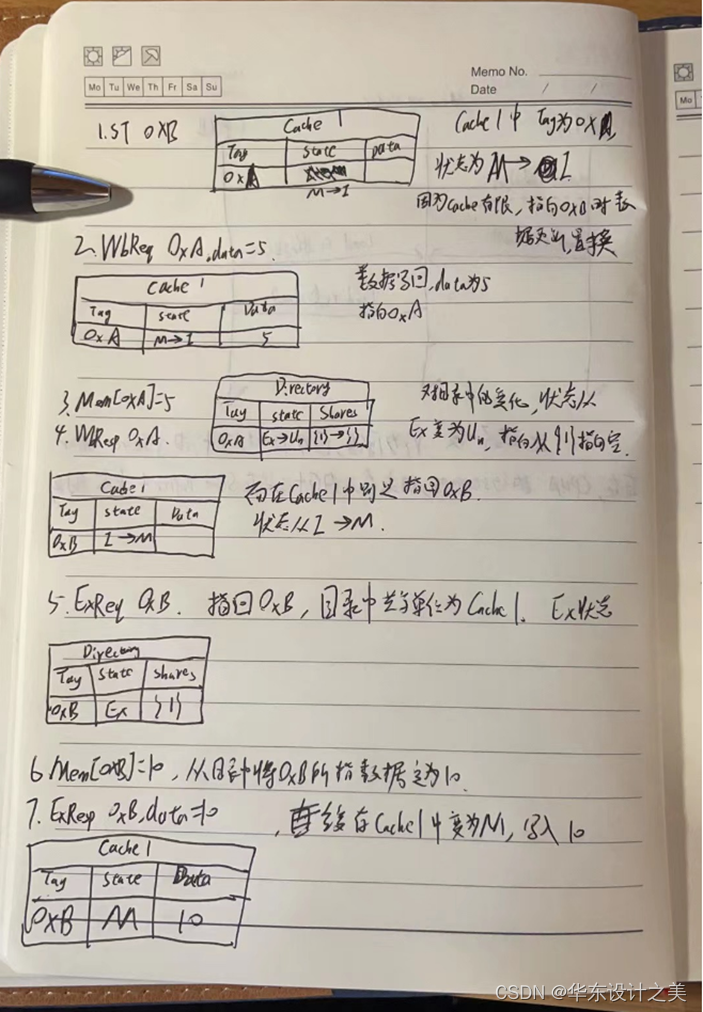 Memo No.
Mo Tu We Th Fr Sa Su
Date / /
1. ST 0XB
Cache 1
Tag State Data
0xA
M→I
Cache 1 中 Tag为0xA,
状态为 M→ I
因为Cache有限, 指向0xB时数
据更新,置换
2. WbReq 0xA, data=5.
Cache 1
Tag State Data
0xA M→I 5
数据写回, data为5
指向0xA
3. Mem[0xA]=5
4. WbResp 0xA.
Directory
Tag State Shares
0xA Ex→Un {1}→{}
对目录中的变化, 状态从
Ex变为Un, 指向从{1}指向空.
Cache 1
Tag State Data
0xB I→M
而在Cache 1中则是指回0xB.
状态从I→M.
5. ExReq 0xB. 指回0xB, 目录中共享单位为Cache 1. Ex状态
Directory
Tag State Shares
0xB Ex {1}
6. Mem[0xB]=10, 从目录中将0xB所指数据定为10.
7. ExResp 0xB, data=10
, 在Cache 1中变为M, 写入10
Cache 1
Tag State Data
0XB M 10
CSDN @华东设计之美